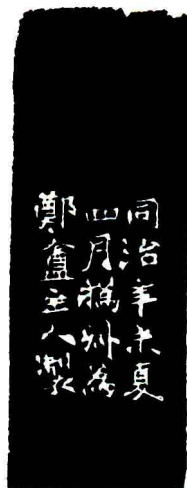 同治辛未夏
四月撝叔為
鄭盦主人製